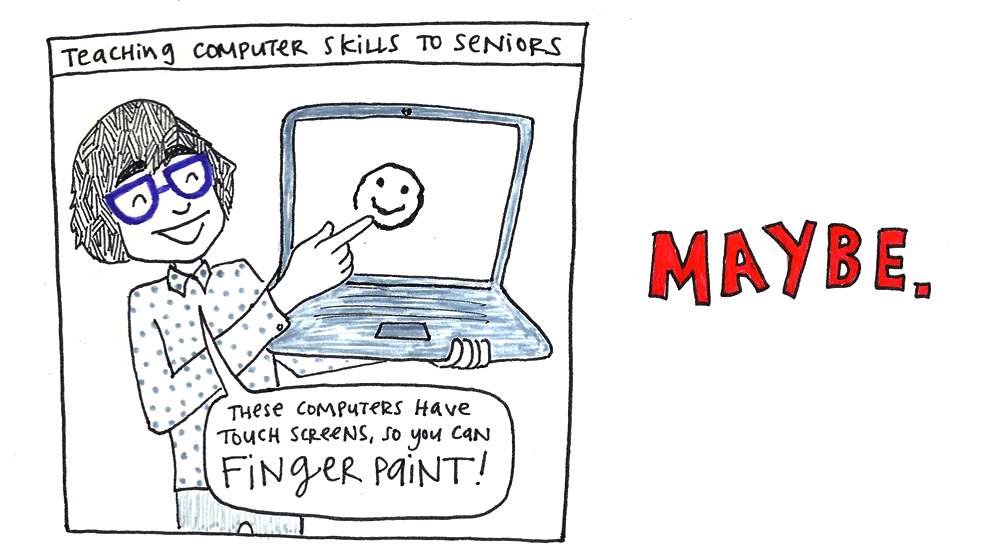 TeacHiNg COMPUTER SKiLLS TO SeNiORS
THese COMPUTERS Have
TOUCH SCReeNS, SO you CaN
FiNgeR PaiNT!
MAYBE.